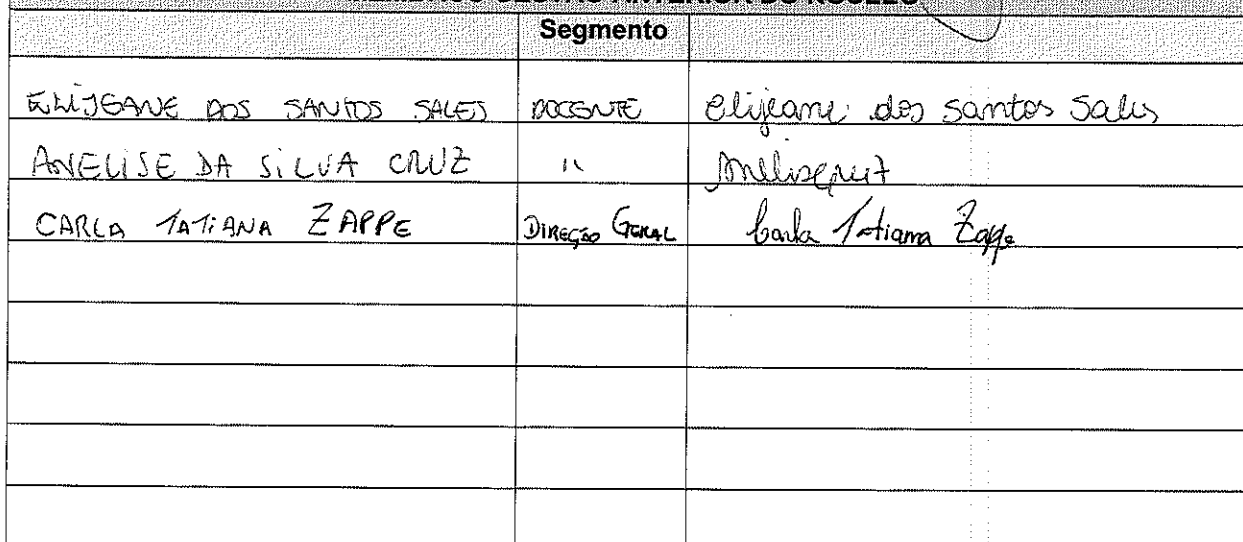 Segmento
ELIJEANE DOS SANTOS SALES DOCENTE Elijeane dos santos Sales
ANELISE DA SILVA CRUZ " Anelise Cruz
CARLA TATIANA ZAPPE DIREÇÃO GERAL Carla Tatiana Zappe